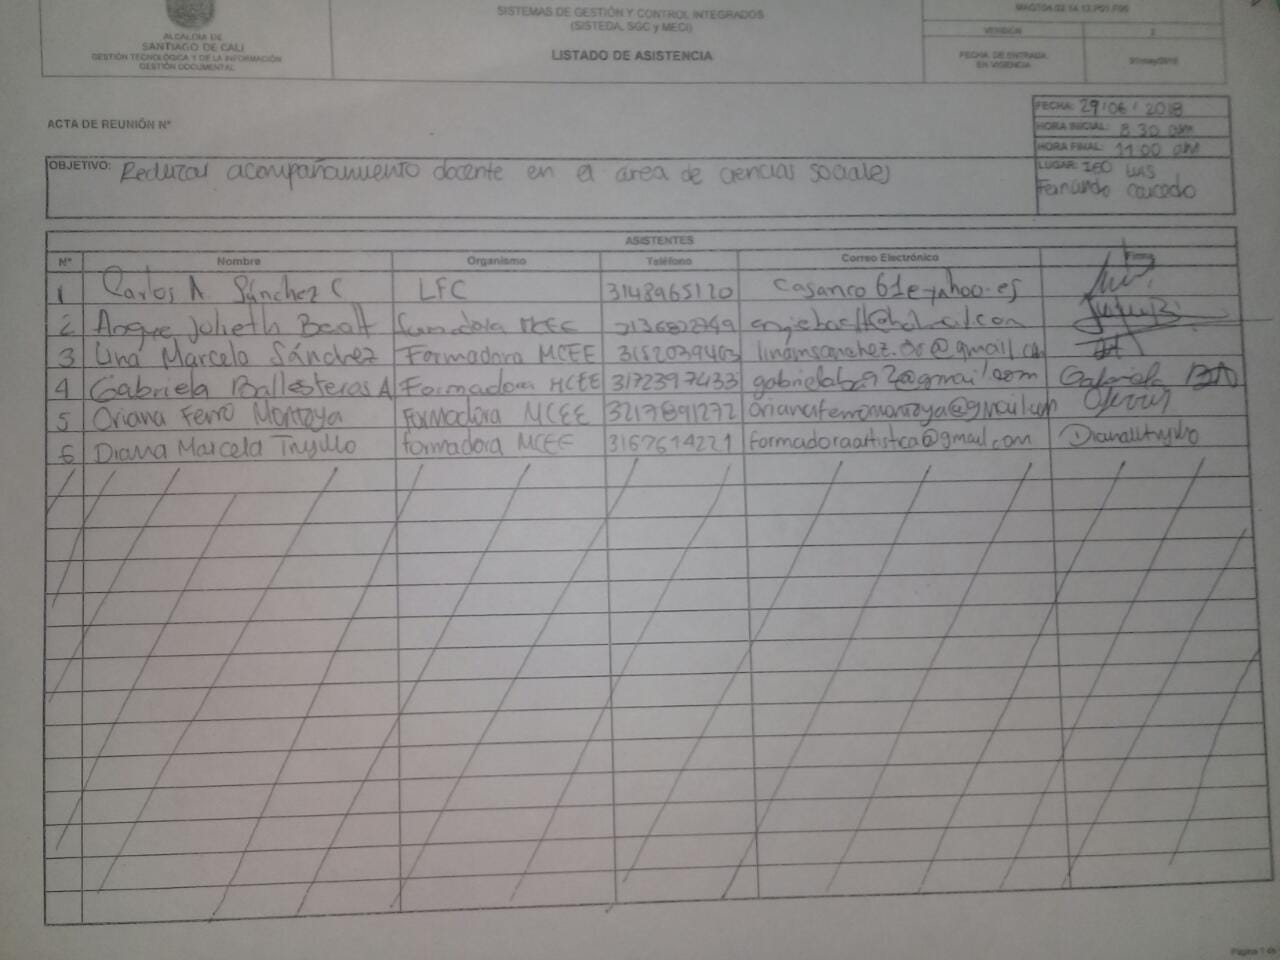 ALCALDÍA DE
SANTIAGO DE CALI
GESTIÓN TECNOLÓGICA Y DE LA INFORMACIÓN
GESTIÓN DOCUMENTAL
SISTEMAS DE GESTIÓN Y CONTROL INTEGRADOS
(SISTEDA, SGC y MECI)
LISTADO DE ASISTENCIA
VERSIÓN 2
FECHA DE ENTRADA
EN VIGENCIA
ACTA DE REUNIÓN N°
FECHA: 29/06/2018
HORA INICIAL: 8 30 am
HORA FINAL: 11 00 am
LUGAR: IEO Luis
Fernando Caicedo
OBJETIVO: Realizar acompañamiento docente en el area de ciencias sociales
ASISTENTES
N° Nombre Organismo Teléfono Correo Electrónico Firma
1 Carlos A. Sánchez C LFC 3148965120 casanco61@yahoo.es
2 Julieth MCEE
3 Lina Marcela Sánchez Formadora MCEE 3152039403
4 Gabriela Ballesteros A Formadora MCEE 3172397433 gabrielaba92@gmail.com Gabriela
5 Oriana Ferro Montoya Formadora MCEE 3217891272 orianaferromontoya@gmail.com
6 Diana Marcela Trujillo formadora MCEE 3167614221 formadoraartistica@gmail.com